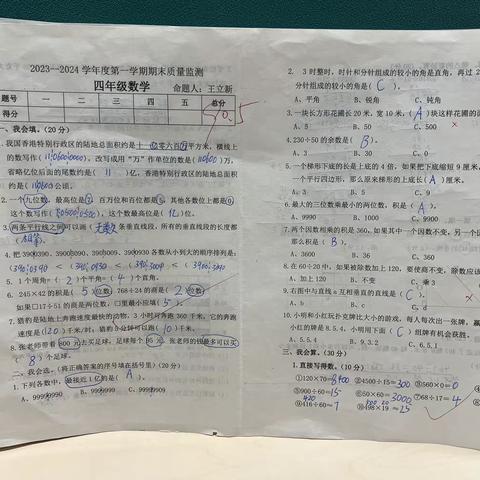 2023--2024 学年度第一学期期末质量监测
四年级数学 命题人：王立新
题号 一 二 三 四 五 总分
得分
一、我会填。（20 分）
1. 我国香港特别行政区的陆地总面积约是十一亿零六百万平方米，横线上
的数写作（ ），改写成用“万”作单位的数是（110600）万，
省略亿位后面的尾数约是（ 11 ）亿，香港特别行政区的陆地总面积
约是（ ）公顷。
2. 一个九位数，最高位是 ，百万位和百位都是5，其他各数位上都是0，
这个数写作（ ），这个数最高位是（亿）位。
3. 两条平行线之间可以画（无数）条垂直线段，所有的垂直线段的长度都
（相等）。
4. 把 各数从小到大的顺序排列是：
< < <
5. 1 个周角=（ 2 ）个平角=（ 4 ）个直角。
6. 245×42 的积是（ 5 ）位数；768÷24 的商是（ 2 ）位数；
如果□17÷51 的商是两位数，□里最小应填（ 5 ）。
7. 猎豹是陆地上奔跑速度最快的动物，3 小时可奔跑 360 千米，它的奔跑
速度是（120）千米/时；猎豹 分钟可以跑（10）千米。
8. 张老师带着 800 元去买足球，足球每个 95 元，张老师的钱最多可以买
（ 8 ）个足球。
二、我会选。（将正确答案的序号填在括号里）（20 分）
1. 下列各数中，最接近 1 亿的是（ A ）。
2. 3 时整时，时针和分针组成的较小的角是直角，再过
分针组成的较小的角是（ C ）。
A、平角 B、锐角 C、钝角
3. 一块长方形花圃长 20 米，宽 10 米，（ A ）块这样花圃的面
A、5 B、50 C、500
4. 230÷50 的余数是（ B ）。
A、3 B、30 C、0
5. 一个梯形下底的长是上底的 4 倍，如果把下底缩短 9 厘米，
一个平行四边形，那么原来梯形的上底长（ ）厘米。
A、3 B、5 C、9
6. 最大的三位数乘最小的两位数，积是（ A ）。
A、9990 B、1000 C、9900
7. 两个因数相乘的积是 360，如果其中一个因数不变，另一个
那么积是（ B ）。
A、3600 B、36 C、360
8. 在 60÷20 中，如果被除数加上 120，要使商不变，除数应该
A、加上 120
9. 右图中与直线 a 互相垂直的直线是（ C ）。
A、b B、c C、d
10. 小明和小红玩扑克牌比大小的游戏，每人每次出一张牌，赢
小红的牌是 8.5.4，小明用下面（ C ）组牌有机会获胜。
A、5.5.4 B、9.3.2 C、6.5.1
三、我会算。（30 分）
1. 直接写得数。（10 分）
①120×70=8400 ②4500÷15=300 ③560×0=0
⑤900÷60=15 ⑥50×60=3000 ⑦68÷17=4
⑨416÷60≈7 ⑩498×19≈